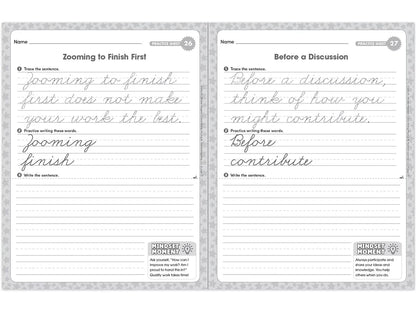 Name
PRACTICE SHEET 26
Zooming to Finish First
1 Trace the sentence.
Zooming to finish
first does not make
your work the best.
2 Practice writing these words.
Zooming
finish
3 Write the sentence.
MINDSET
MOMENT
Ask yourself, "How can I
improve my work? Am I
proud to hand this in?"
Quality work takes time!
Name
PRACTICE SHEET 27
Before a Discussion
1 Trace the sentence.
Before a discussion,
think of how you
might contribute.
2 Practice writing these words.
Before
contribute
3 Write the sentence.
MINDSET
MOMENT
Always participate and
share your ideas and
knowledge. You help
others when you do.